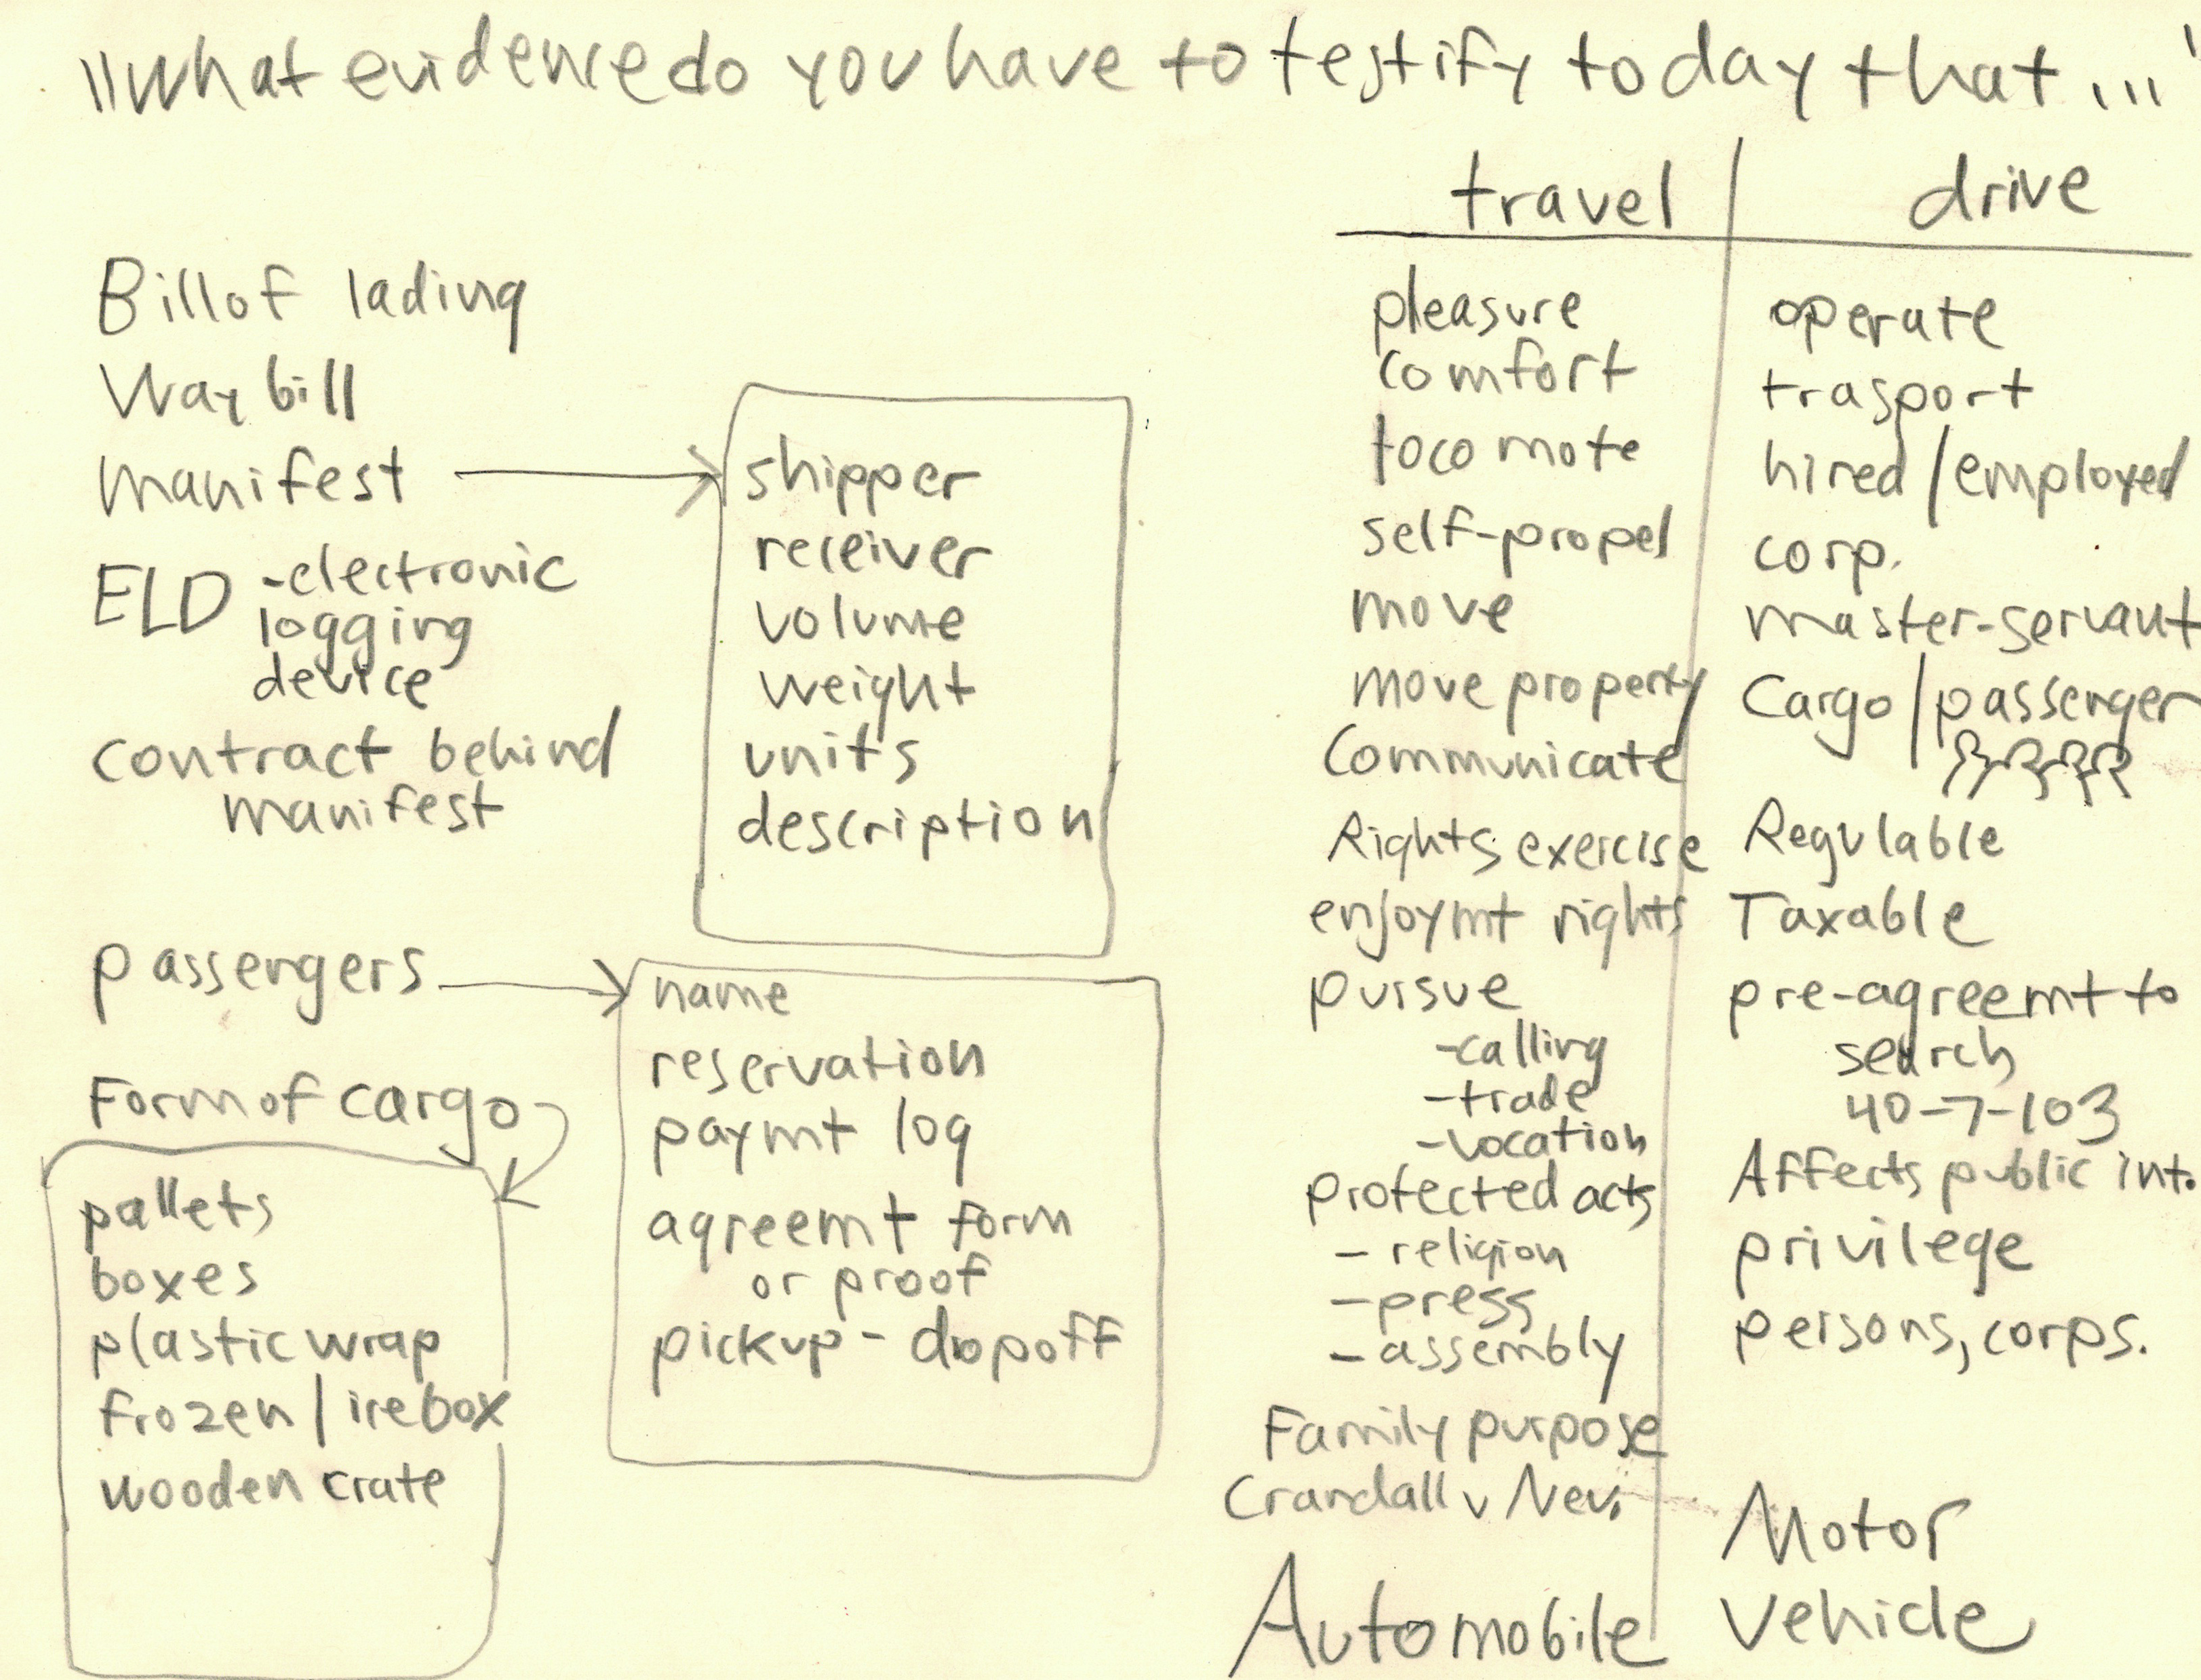 "What evidence do you have to testify today that..."
Bill of lading
Way bill
manifest
ELD -electronic
logging
device
contract behind
manifest
shipper
receiver
volume
weight
units
description
passengers
name
reservation
paymt log
agreemt form
or proof
pickup - dopoff
Form of cargo
pallets
boxes
plastic wrap
frozen / icebox
wooden crate
travel
pleasure
comfort
locomote
self-propel
move
move property
Communicate
Rights exercise
enjoymt rights
pursue
-calling
-trade
-vocation
protected acts
- religion
- press
- assembly
Family purpose
Crandall v Nev.
Automobile
drive
operate
trasport
hired / employed
corp.
master-servant
Cargo / passenger
Regulable
Taxable
pre-agreemt to
search
40-7-103
Affects public int.
privilege
persons, corps.
Motor
Vehicle